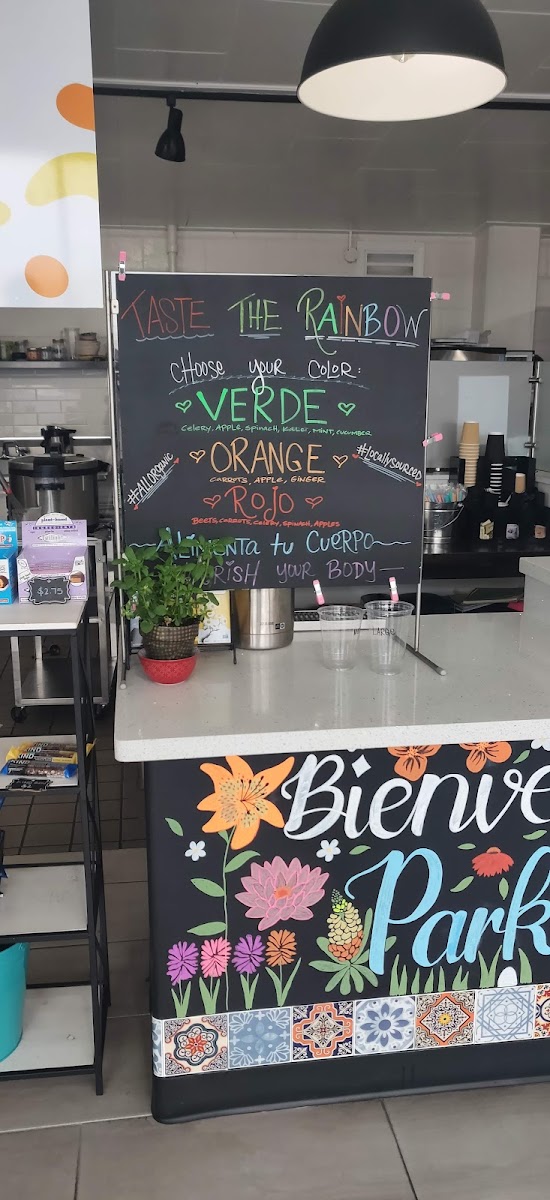 TASTE THE RAINBOW
CHOOSE YOUR COLOR:
VERDE
CELERY, APPLE, SPINACH, KALE, MINT, CUCUMBER
ORANGE
CARROTS, APPLE, GINGER
#ALLORGANIC
#LOCALLYSOURCED
ROJO
BEETS, CARROTS, CELERY, SPINACH, APPLES
ALIMENTA tu CUERPO
RISH YOUR BODY
LARGE
plant-based
$2.75
KIND
KIND
Bienve
Park